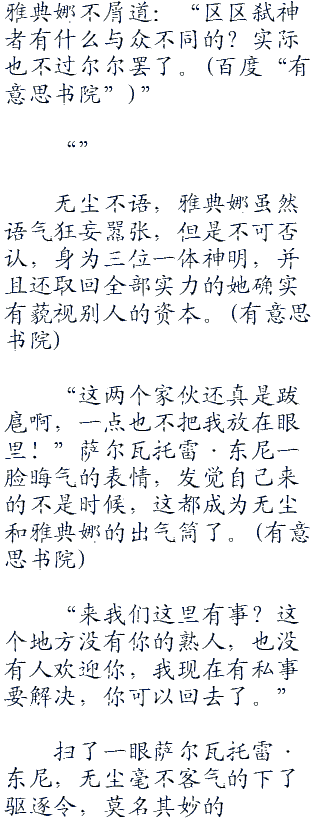 雅典娜不屑道：“区区弑神
者有什么与众不同的？实际
也不过尔尔罢了。(百度“有
意思书院”)”
“”
无尘不语，雅典娜虽然
语气狂妄嚣张，但是不可否
认，身为三位一体神明，并
且还取回全部实力的她确实
有藐视别人的资本。(有意思
书院)
“这两个家伙还真是跋
扈啊，一点也不把我放在眼
里！”萨尔瓦托雷·东尼一
脸晦气的表情，发觉自己来
的不是时候，这都成为无尘
和雅典娜的出气筒了。(有意
思书院)
“来我们这里有事？这
个地方没有你的熟人，也没
有人欢迎你，我现在有私事
要解决，你可以回去了。”
扫了一眼萨尔瓦托雷·
东尼，无尘毫不客气的下了
驱逐令，莫名其妙的